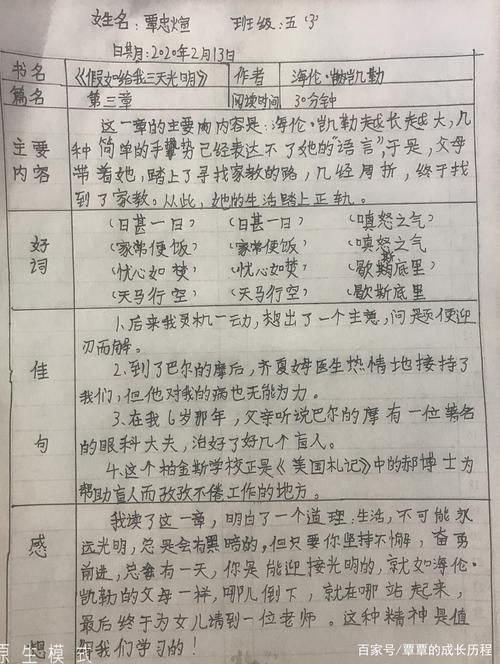 姓名：覃忠煊 班级：五（3）
日期：2020年2月13日
书名 《假如给我三天光明》 作者 海伦·凯勒
篇名 第三章 阅读时间 30分钟
主要内容
这一章的主要内容是：海伦·凯勒越长越大，几
种简单的手势已经表达不了她的语言，于是，父母
带着她，踏上了寻找家教的路，几经周折，终于找
到了家教。从此，她的生活踏上正轨。
好词
（日甚一日） （日甚一日） （嗔怒之气）
（家常便饭） （家常便饭） （嗔怒之气
（忧心如焚） （忧心如焚） （歇斯底里）
（天马行空） （天马行空） （歇斯底里
佳句
1、后来我灵机一动，想出了一个主意，问题便迎
刃而解。
2、到了巴尔的摩后，齐夏姆医生热情地接待了
我们，但他对我的病也无能为力。
3、在我6岁那年，父亲听说巴尔的摩有一位著名
的眼科大夫，治好了好几个盲人。
4、这个柏金斯学校正是《美国札记》中的郝博士为
帮助盲人而孜孜不倦工作的地方。
感想
我读了这一章，明白了一个道理：生活，不可能永
远光明，总是会有黑暗的，但只要你坚持不懈，奋勇
前进，总会有一天，你是能迎接光明的，就如海伦·
凯勒的父母一样，哪儿倒下，就在哪站起来，
最后终于为女儿请到一位老师。这种精神是值
得我们学习的！
原生模式
百家号/覃覃的成长历程